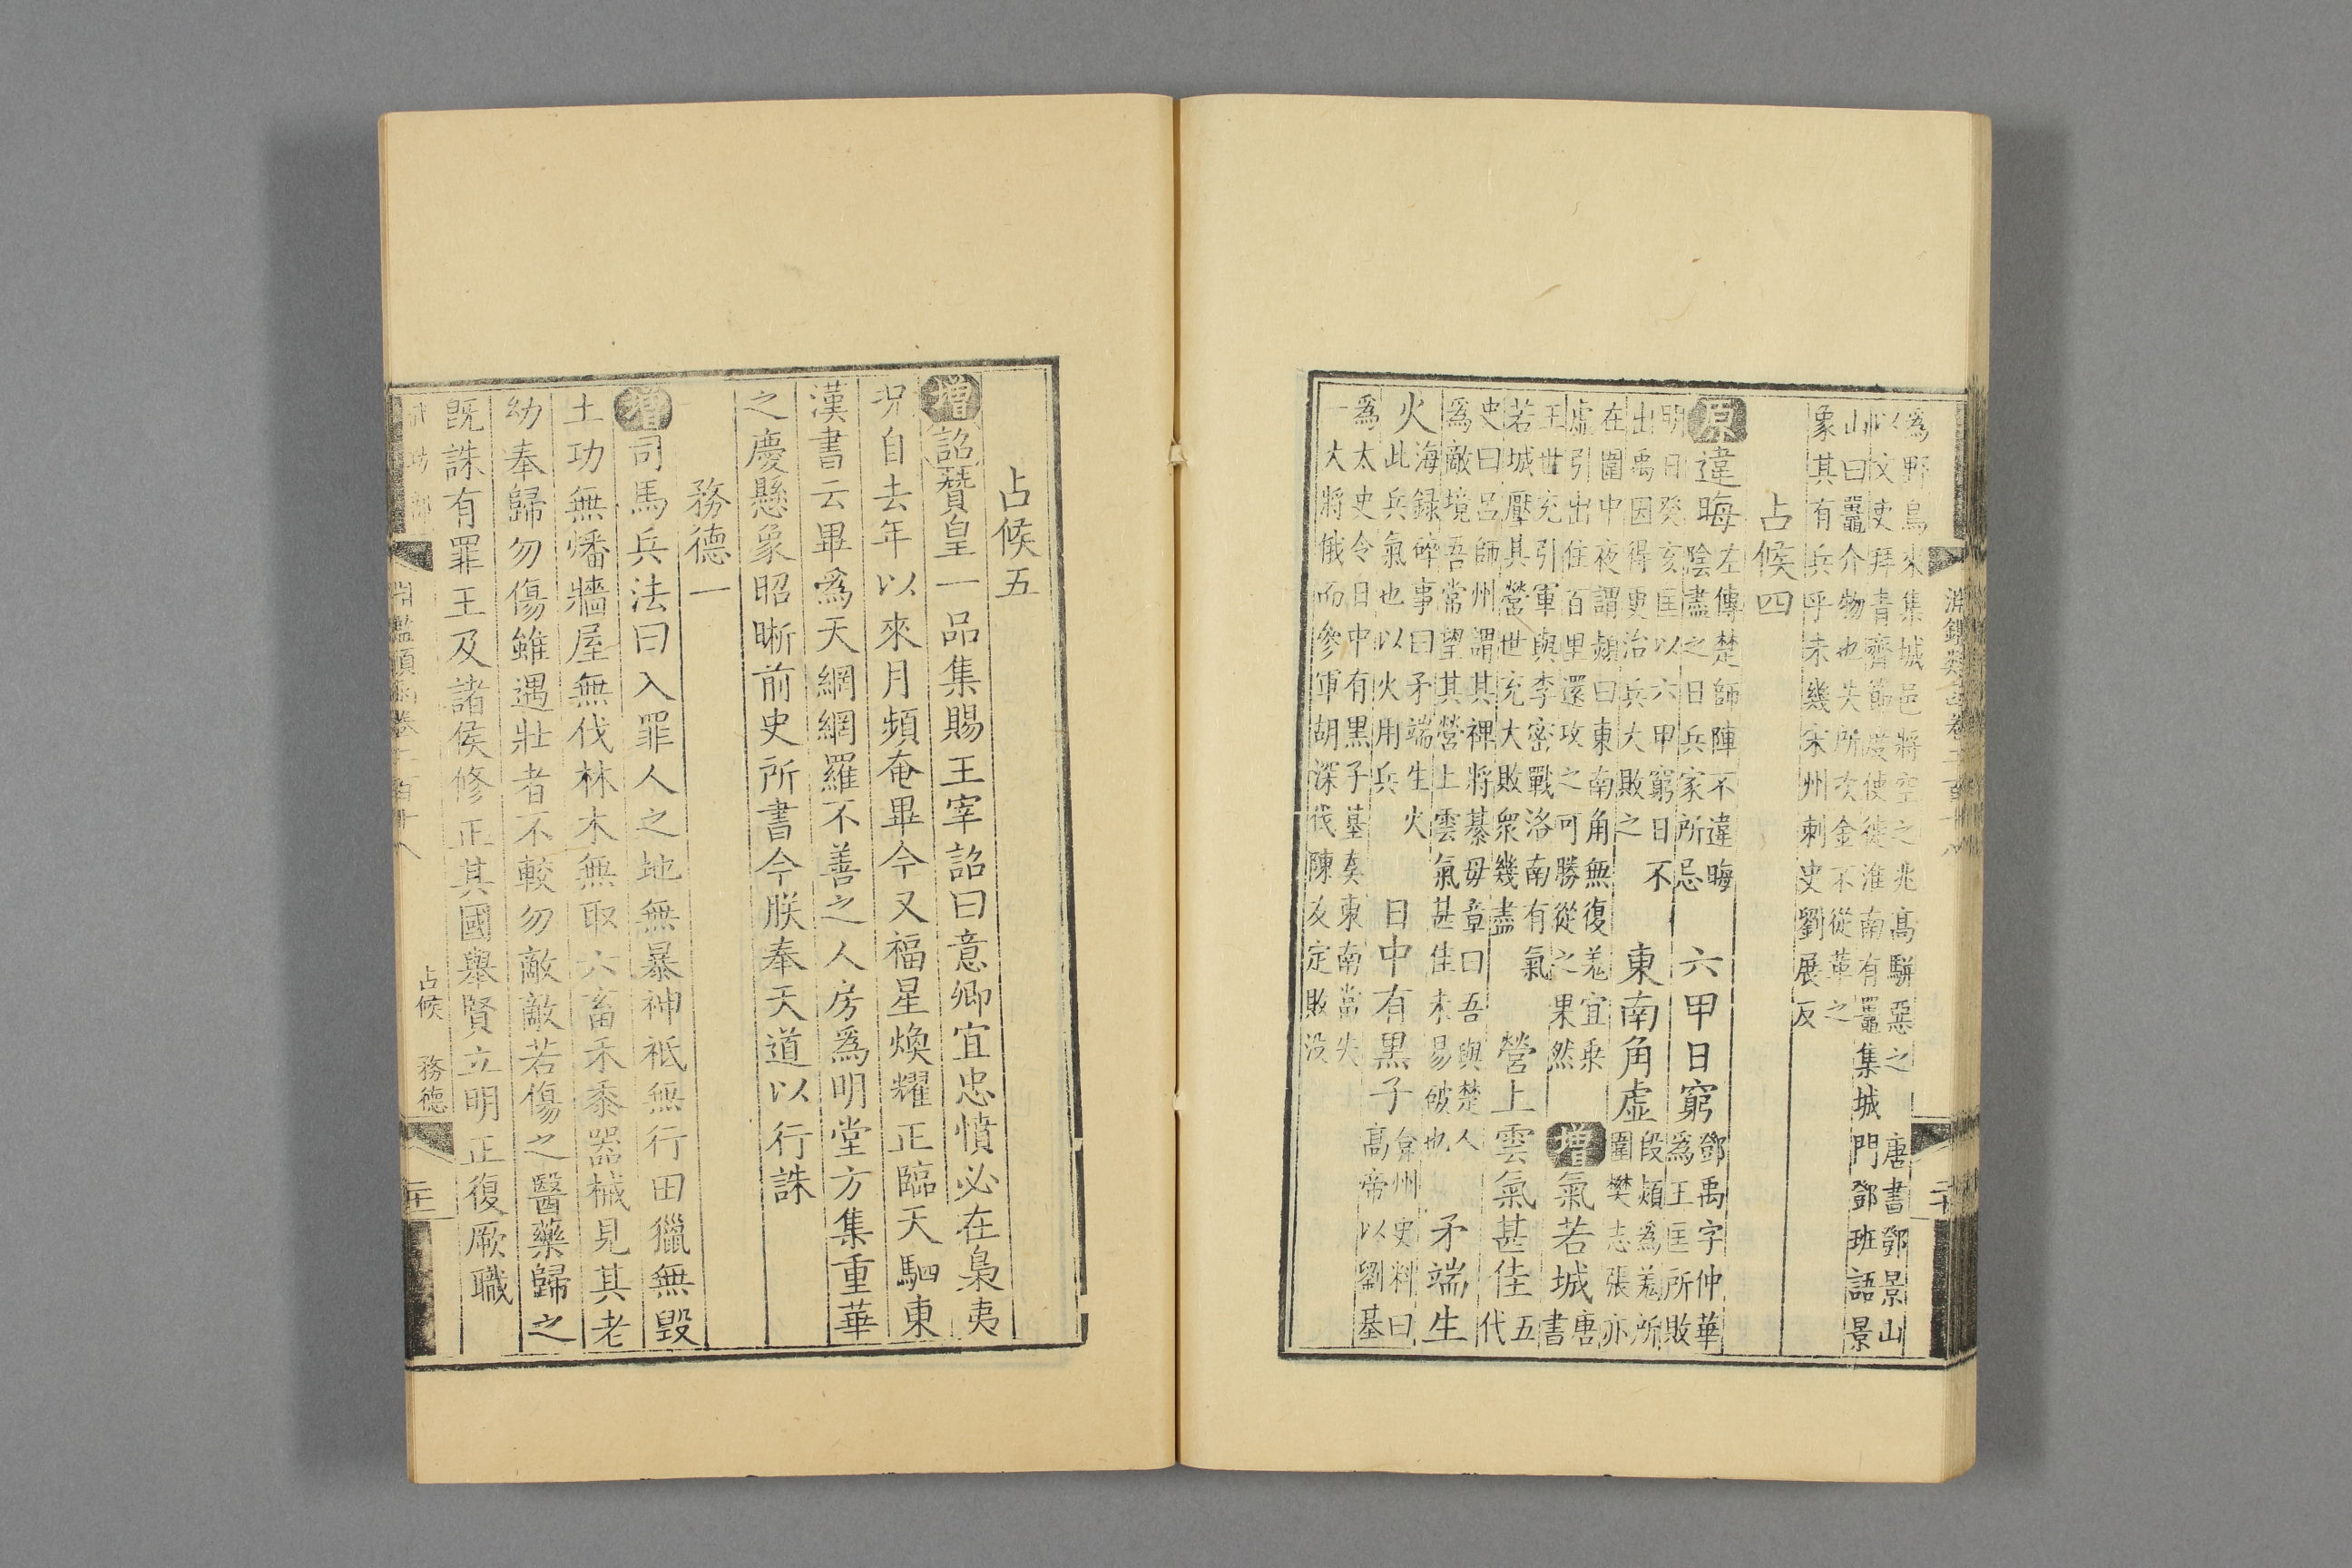 淵鑑類函卷二百十八
二十
為野鳥來集城邑將空之兆高駢惡之　唐書鄧景山
以文吏拜青齊節度使徙淮南有鼉集城門鄧班語景
山曰鼉介物也失所次金不從革之
象其有兵乎未幾宋州刺史劉展反
占候四
原違晦左傳楚師陣不違晦陰盡之日兵家所忌　六甲日窮鄧禹字仲華為王匡所敗
明日癸亥匡以六甲窮日不出禹因得更治兵大敗之　東南角虛段熲為羌所圍樊志張亦
在圍中夜謂熲曰東南角無復羌宜乘虛引出住百里還攻之可勝從之果然　增氣若城唐書
王世充引軍與李密戰洛南有氣若城壓其營世充大敗衆幾盡　營上雲氣甚佳五代
史曰呂師州謂其裨將綦毋章曰吾與楚人為敵境吾常望其營上雲氣甚佳未易破也　矛端生
火海録碎事曰矛端生火此兵氣也以火用兵　日中有黑子弇州史料曰高帝以劉基
為太史令日中有黑子基奏東南當失一大將俄而參軍胡深伐陳友定敗没
占候五
增詔贊皇一品集賜王宰詔曰意卿宜忠憤必在梟夷
況自去年以來月頻奄畢今又福星煥耀正臨天駟東
漢書云畢爲天網網羅不善之人房爲明堂方集重華
之慶懸象昭晣前史所書今朕奉天道以行誅
務德一
增司馬兵法曰入罪人之地無暴神祇無行田獵無毀
土功無燔牆屋無伐林木無取六畜禾黍器械見其老
幼奉歸勿傷雖遇壯者不較勿敵敵若傷之醫藥歸之
既誅有罪王及諸侯修正其國舉賢立明正復厥職
武功部
淵鑑類函卷二百十八
占候　務德
二十一